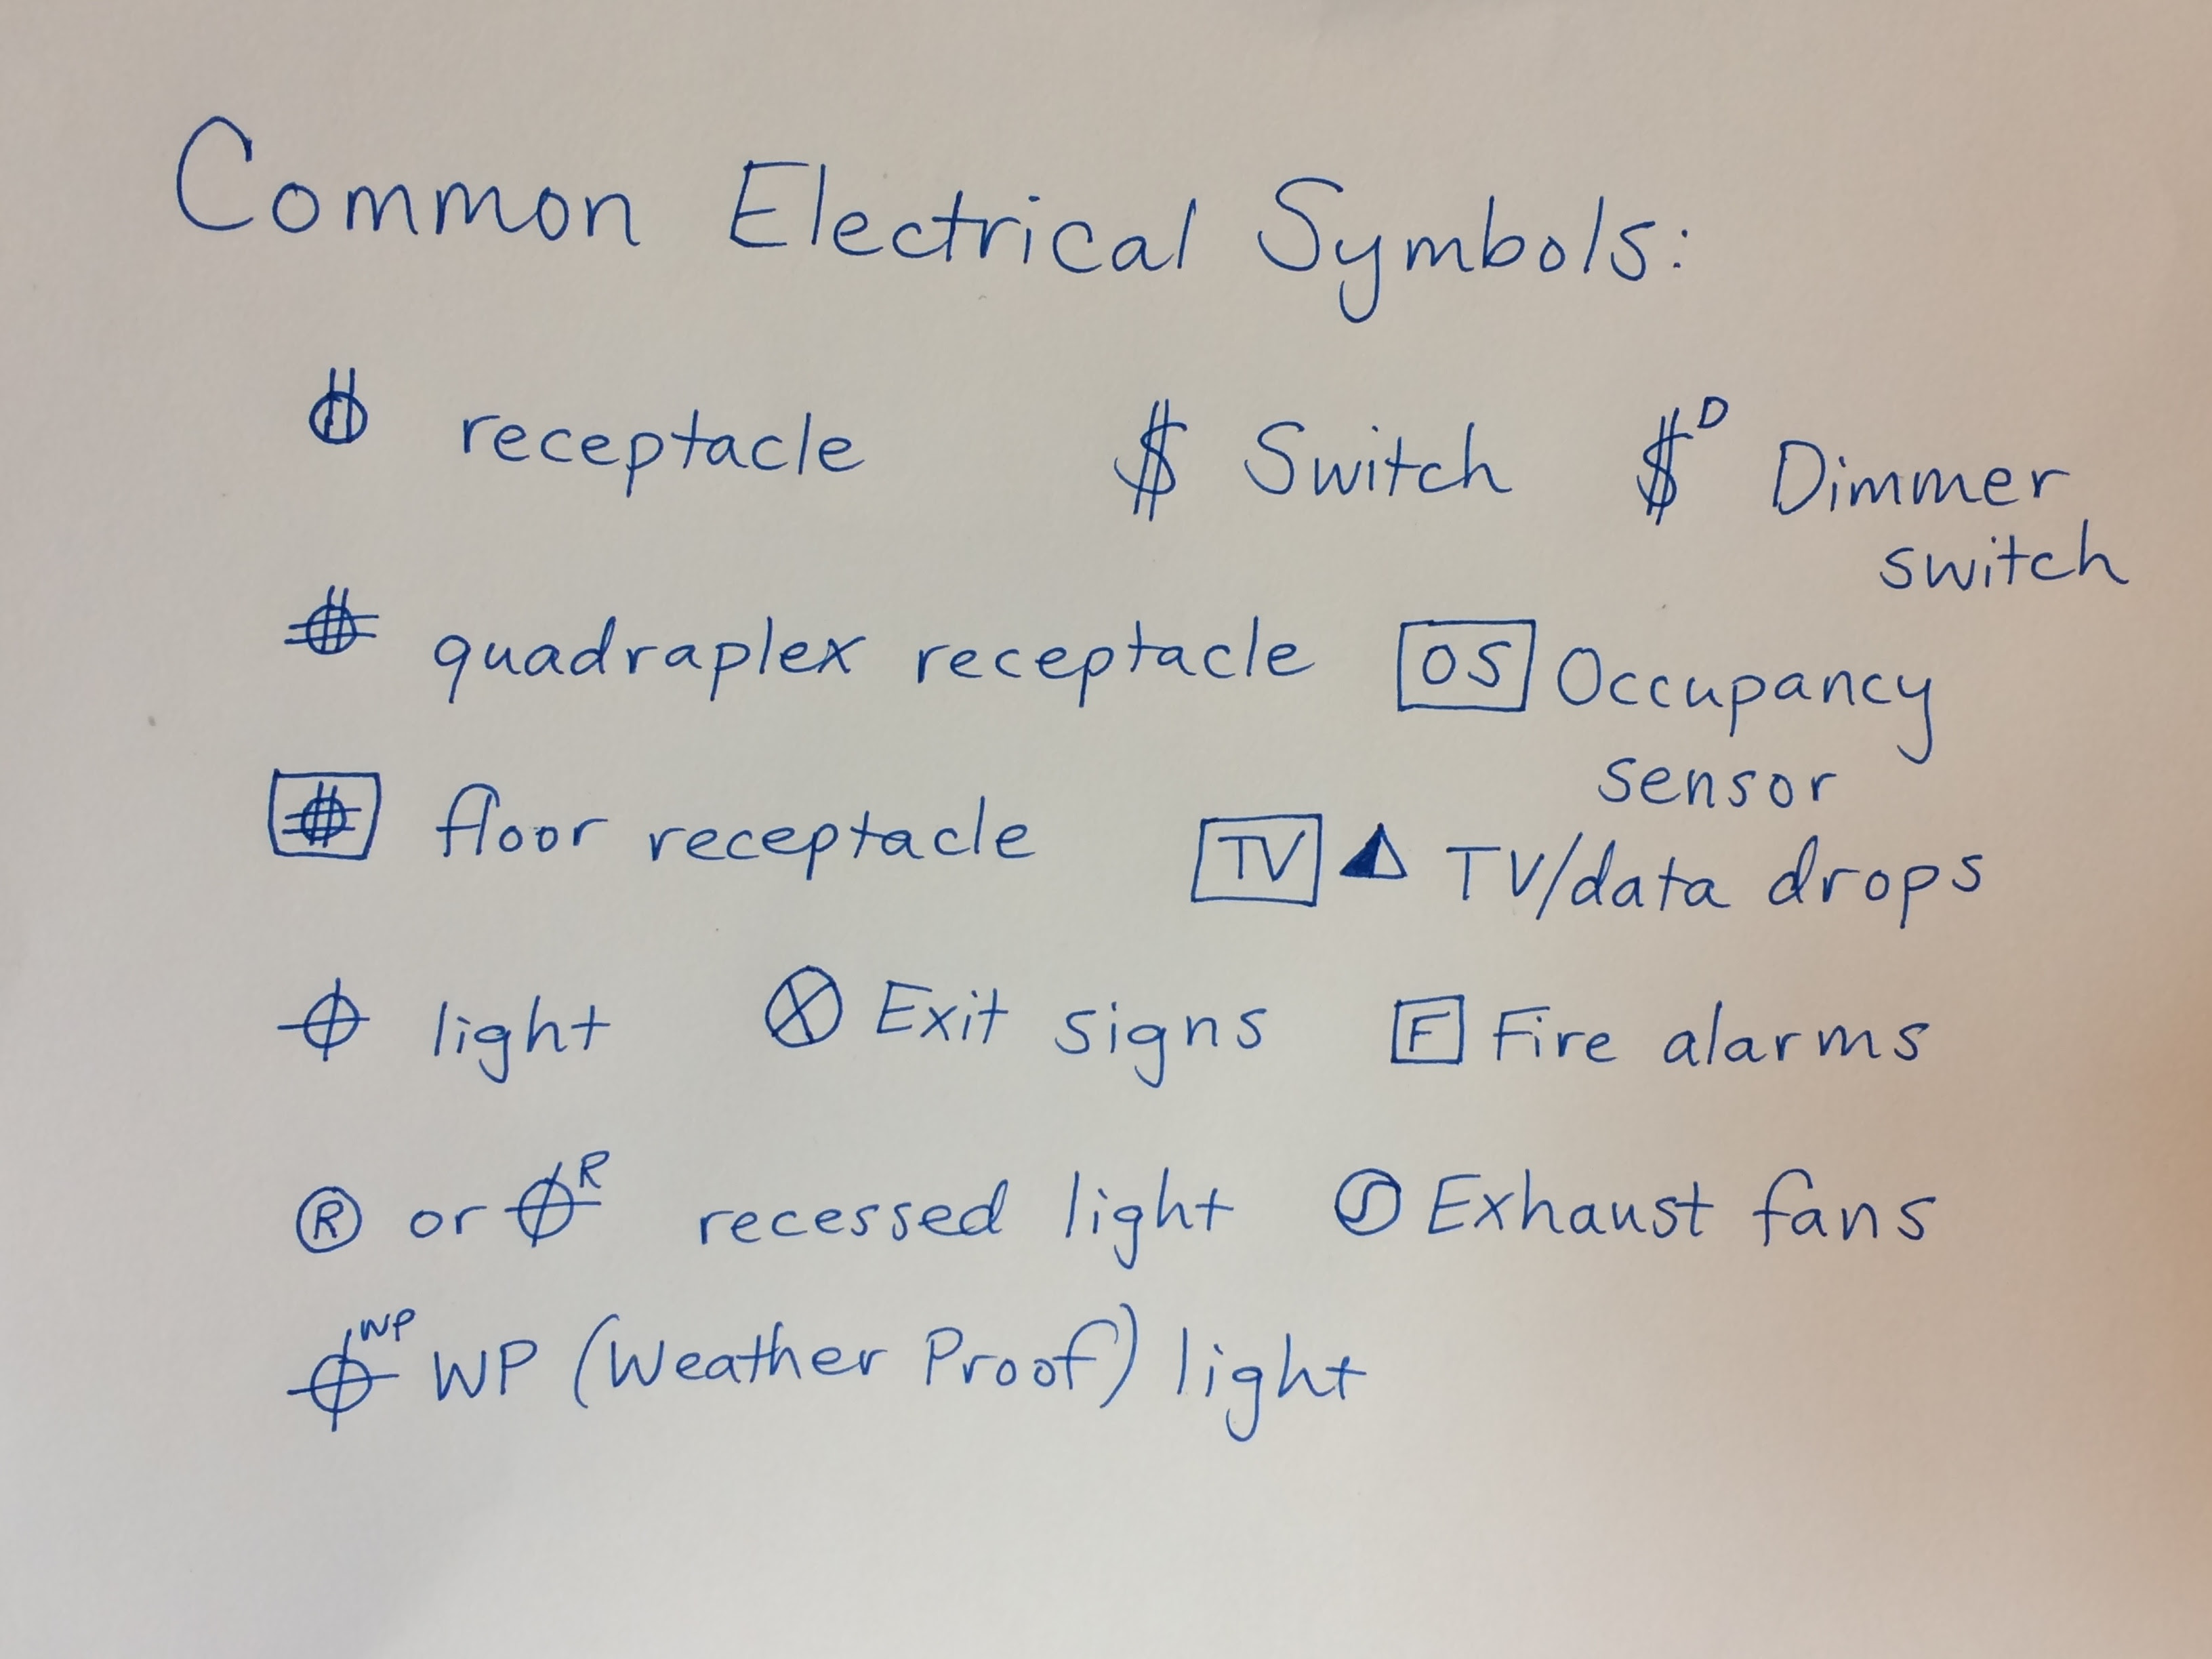 Common Electrical Symbols:
receptacle $ Switch $ D Dimmer
switch
quadraplex receptacle OS Occupancy
sensor
floor receptacle TV TV/data drops
light Exit signs F Fire alarms
R or R recessed light Exhaust fans
WP WP (Weather Proof) light